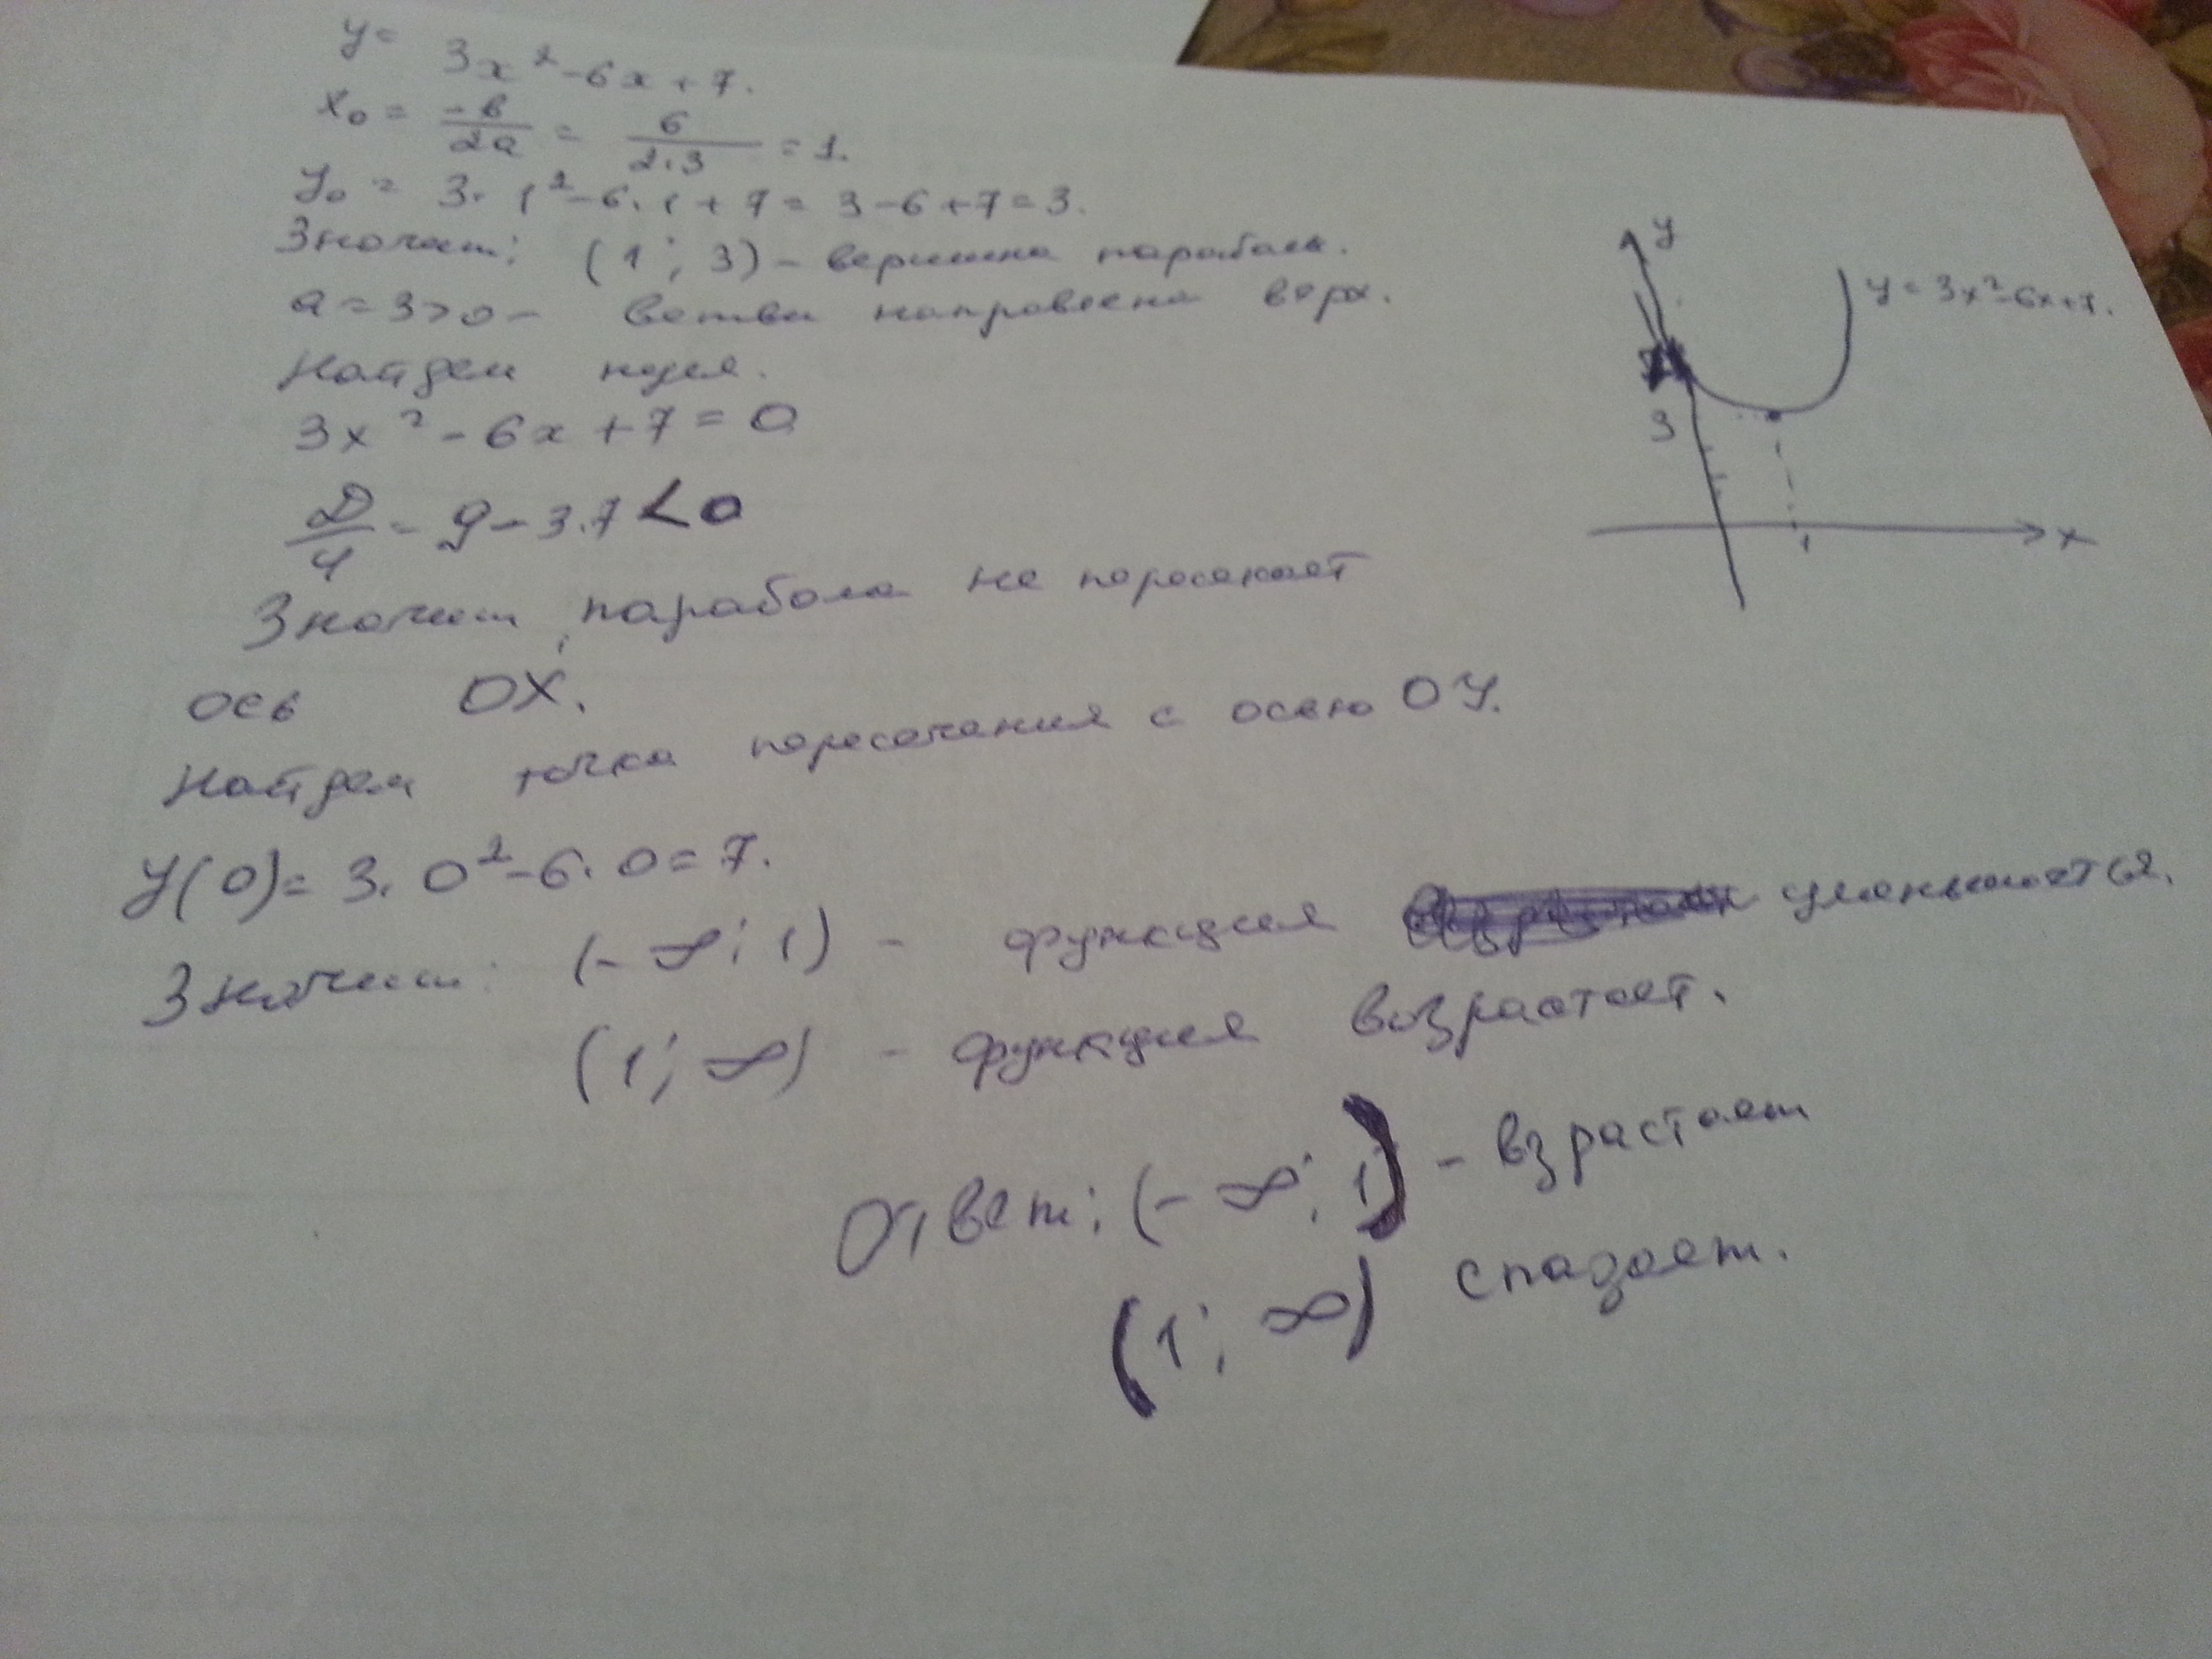 y = 3x² - 6x + 7.
x₀ = -в/2a = 6/2·3 = 1.
y₀ = 3·1² - 6·1 + 7 = 3 - 6 + 7 = 3.
Значит: (1; 3) - вершина параболы.
a = 3 > 0 - ветви направлены верх.
Найдем нули.
3x² - 6x + 7 = 0
D/4 = 9 - 3·7 < 0
Значит, парабола не пересекает
ось OX.
Найдем точка пересечения с осью OY.
y(0) = 3·0² - 6·0 = 7.
Значит: (-∞; 1) - функция уменьшается.
(1; ∞) - функция возрастает.
Ответ: (-∞; 1) - взрастает
(1; ∞) спадает.
y
y = 3x² - 6x + 7.
3
1
x